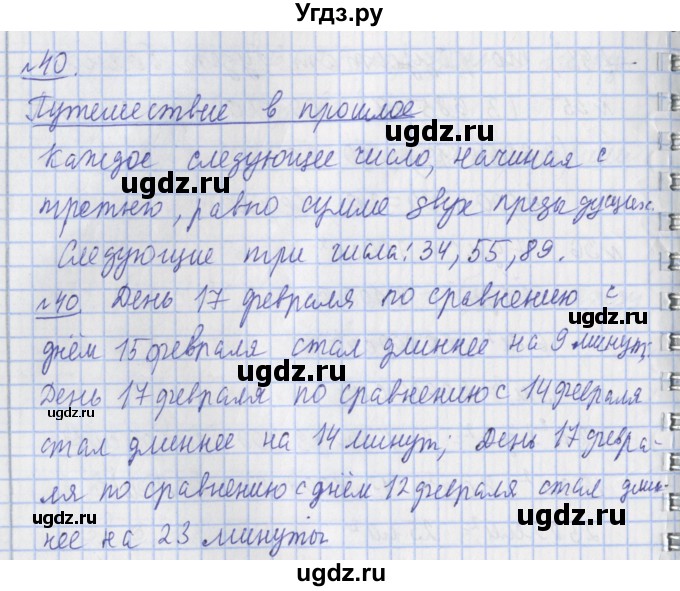 Угдз.ру
№40.
Путешествие в прошлое
ugdz.ru
Каждое следующее число, начиная с
ugdz.ru
третьего, равно сумме двух предыдущих.
ugdz.ru
Следующие три числа: 34, 55, 89.
№40 День 17 февраля по сравнению с
ugdz.ru
днём 15 февраля стал длиннее на 9 минут;
ugdz.ru
День 17 февраля по сравнению с 14 февраля
ugdz.ru
стал длиннее на 14 минут; День 17 февра-
ugdz.ru
ля по сравнению с днём 12 февраля стал длин-
ugdz.ru
нее на 23 минуты
ugdz.ru